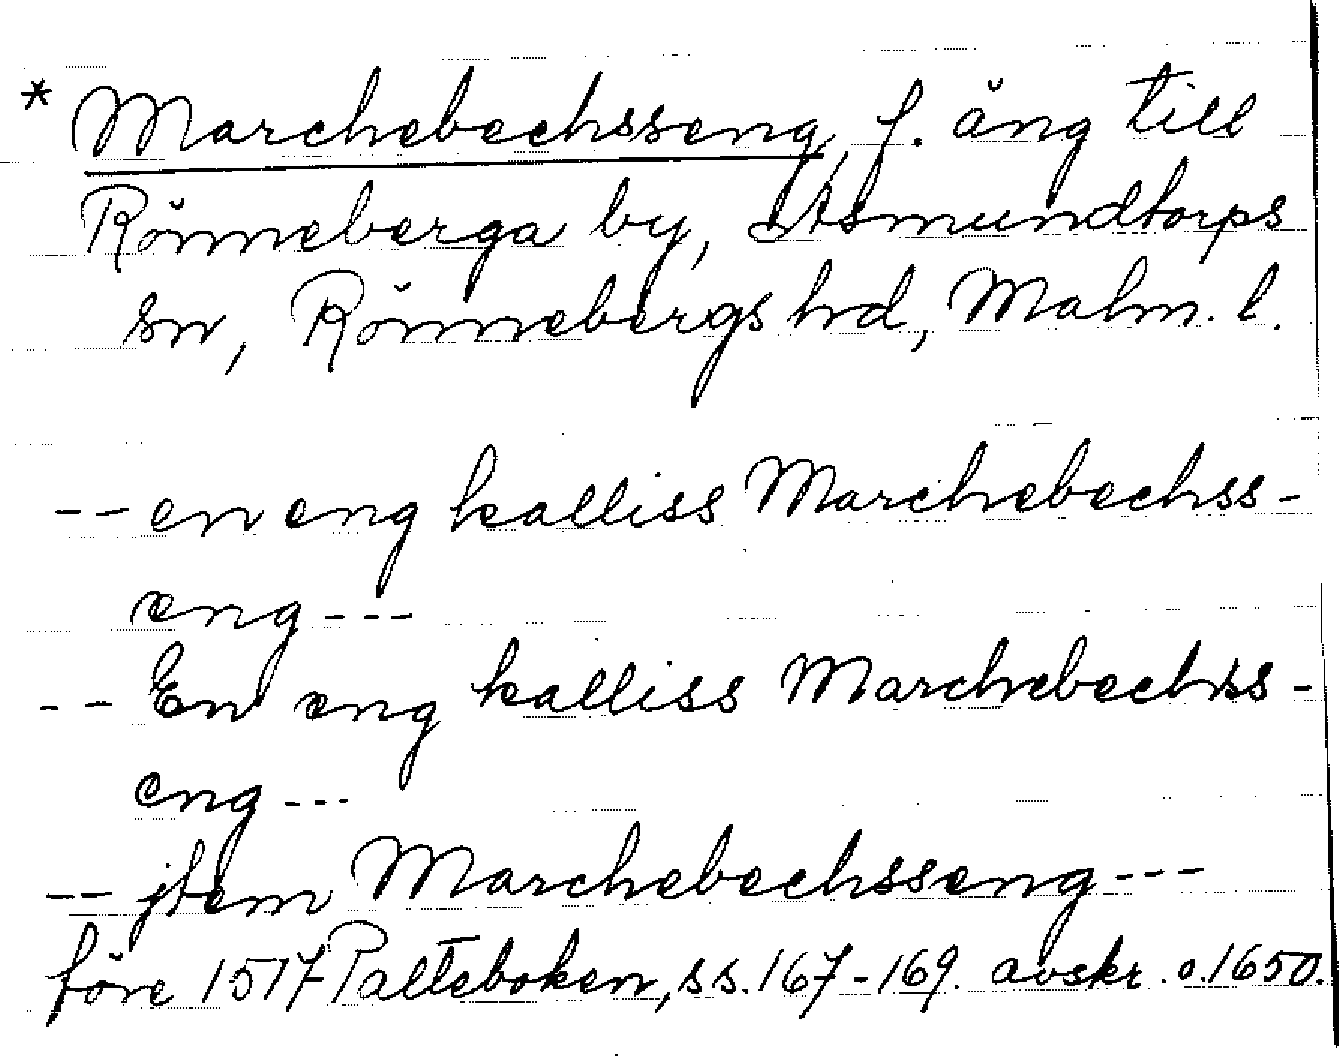 * Marchebechsseng, f. äng till
Rönneberga by, Asmundtorps
sn, Rönnebergs hd, Malm. l.
-- en eng kalliss Marchebechss-
eng ---
-- En eng kalliss Marchebechss-
eng ---
-- jtem Marchebechsseng ---
före 1517 Palteboken, ss. 167-169. avskr. o. 1650.